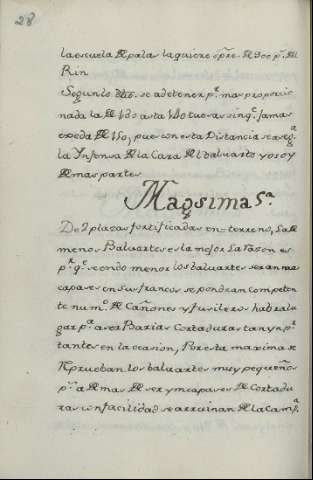 28
la escuela Olpala la quiere opre. de 300 p.s del
Rin
Segun lo dho. se a de tener p.r mas proporcio
nada la de 130 asta 140 tuesas sin q.e Jamas
exceda de 150, pues con esta Distancia se aseg.a
la Ynfensa de la Cara del baluarte yosoy
de mas partes
Magsima 5.a
De 2 plazas fortificadas en terreno, la de
menos Baluartes es la mejor La rason es
p.r q.e siendo menor los baluartes seran ma
capases en sus francos se pondran competen
te num.o de Cañones y fusileros habra lu
gar p.a aser Barias Cortaduras tan ynp.r
tantes en la ocasion, Por esta maxima se
Reprueban los baluartes muy pequeños
p.s a de mas de ser yncapases de Cortadu
ras con facilidad se arruinan de la Camp.a